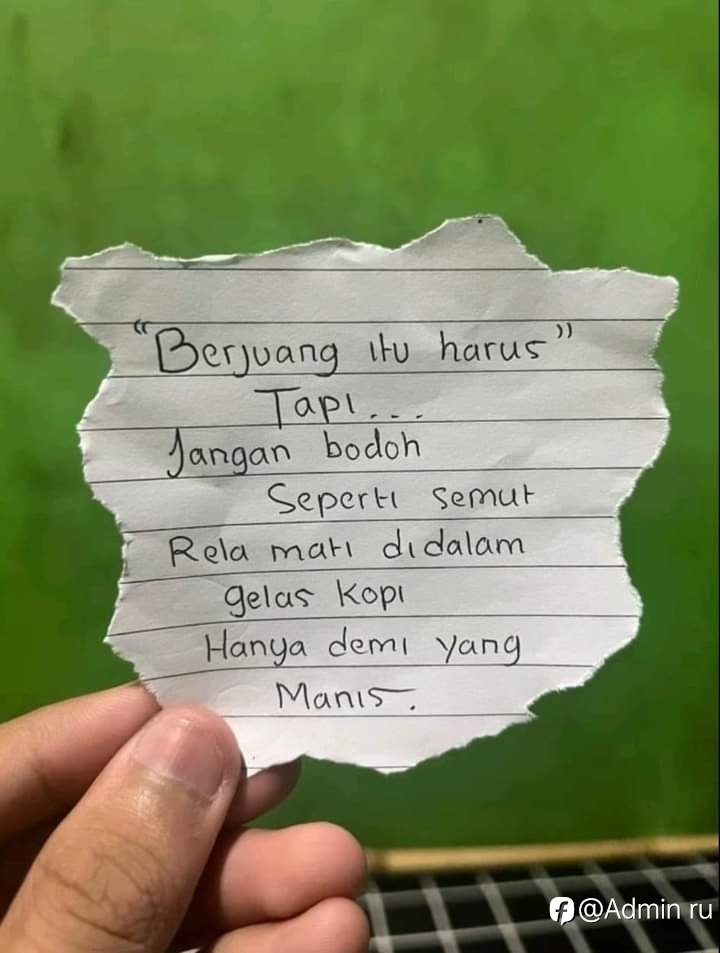 "Berjuang itu harus"
Tapi...
Jangan bodoh
Seperti semut
Rela mati didalam
gelas kopi
Hanya demi yang
Manis.
@Admin ru